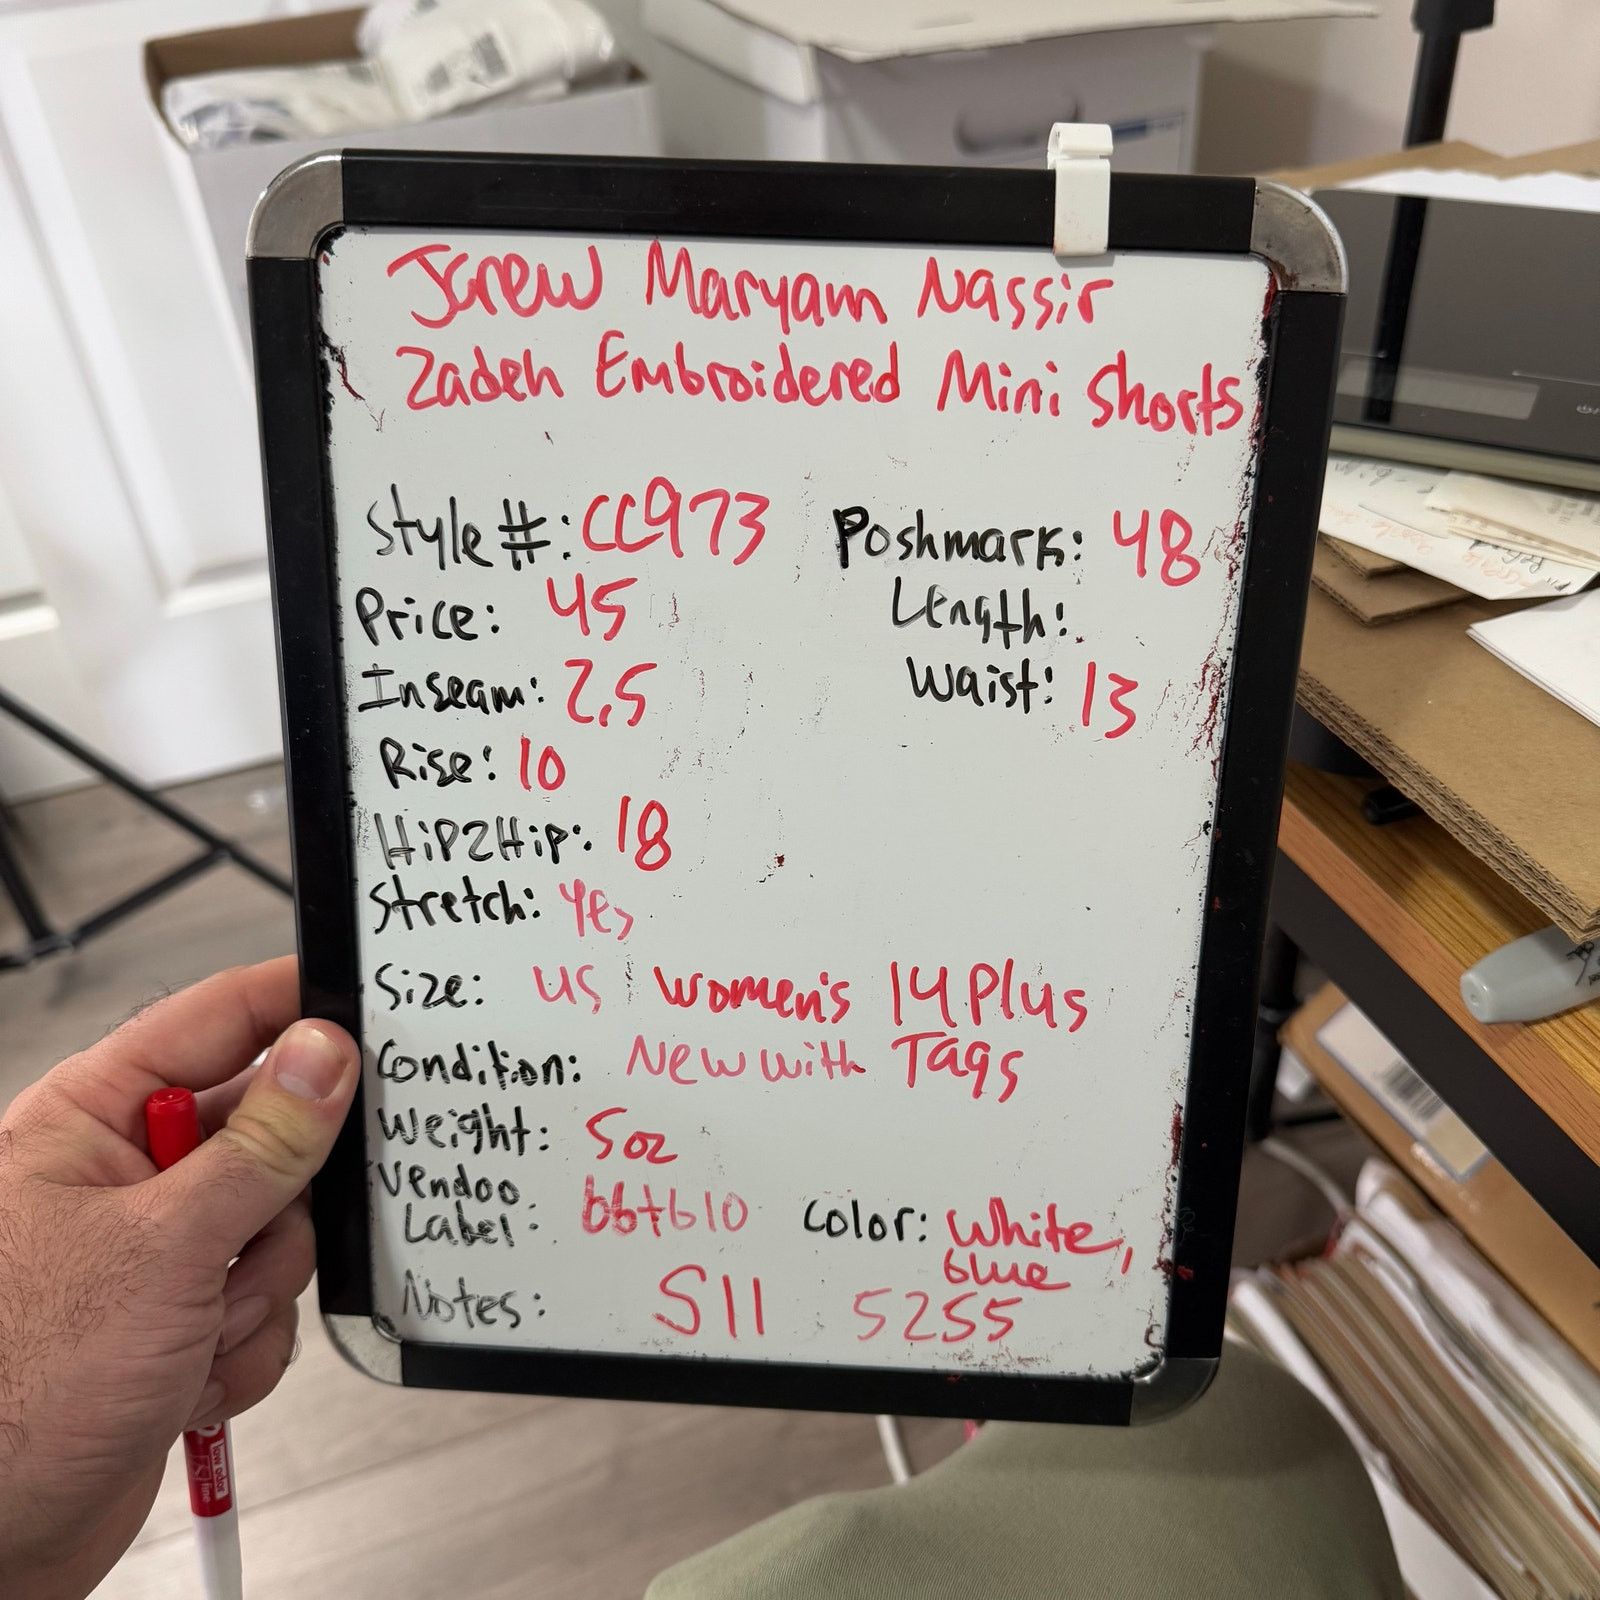 Jcrew Maryam Nassir
Zadeh Embroidered Mini Shorts
Style #: CC973
Poshmark: 48
Price: 45
Length:
Inseam: 2.5
Waist: 13
Rise: 10
Hip2Hip: 18
Stretch: Yes
Size: US Women's 14 Plus
Condition: New with Tags
Weight: 5oz
Vendoo
Label: bbtb10
Color: White,
blue
Notes: S11 5255
low odor
fine